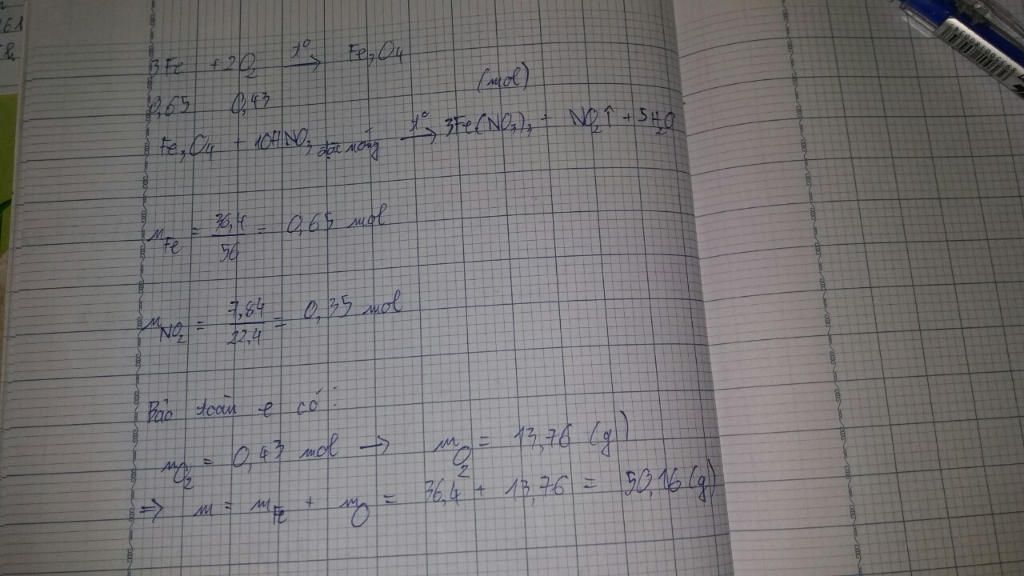 3Fe + 2O2 t° → Fe3O4
0,65 0,43 (mol)
Fe3O4 + 10HNO3 đặc nóng t° → 3Fe(NO3)3 + NO2↑ + 5H2O
nFe = 36,4/56 = 0,65 mol
nNO2 = 7,84/22,4 = 0,35 mol
Bảo toàn e có:
nO2 = 0,43 mol → mO2 = 13,76 (g)
⇒ m = mFe + mO = 36,4 + 13,76 = 50,16 (g)